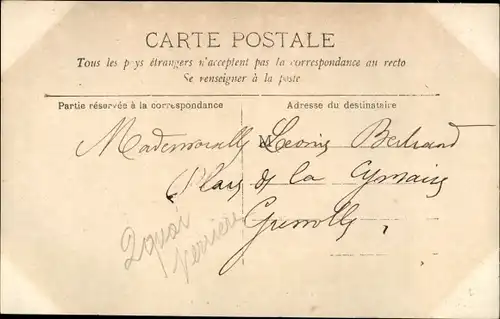 CARTE POSTALE
Tous les pays étrangers n'acceptent pas la correspondance au recto
Se renseigner à la poste
Partie réservée à la correspondance
Adresse du destinataire
Mademoiselle Leonie Bertrand
Place de la Cymaise
Grenoble
2 quai
Perrière